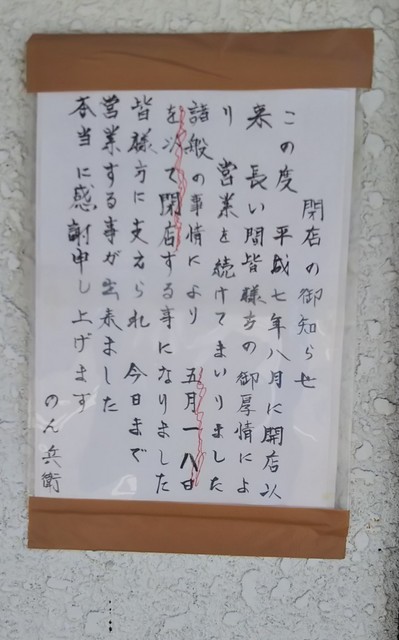 閉店の御知らせ
この度 平成七年八月に開店以
来 長い間皆様方の御厚情によ
り 営業を続けてまいりました
諸般の事情により 五月一八日
を以て閉店する事になりました
皆様方に支えられ 今日まで
営業する事が出来ました
本当に感謝申し上げます
のん兵衛